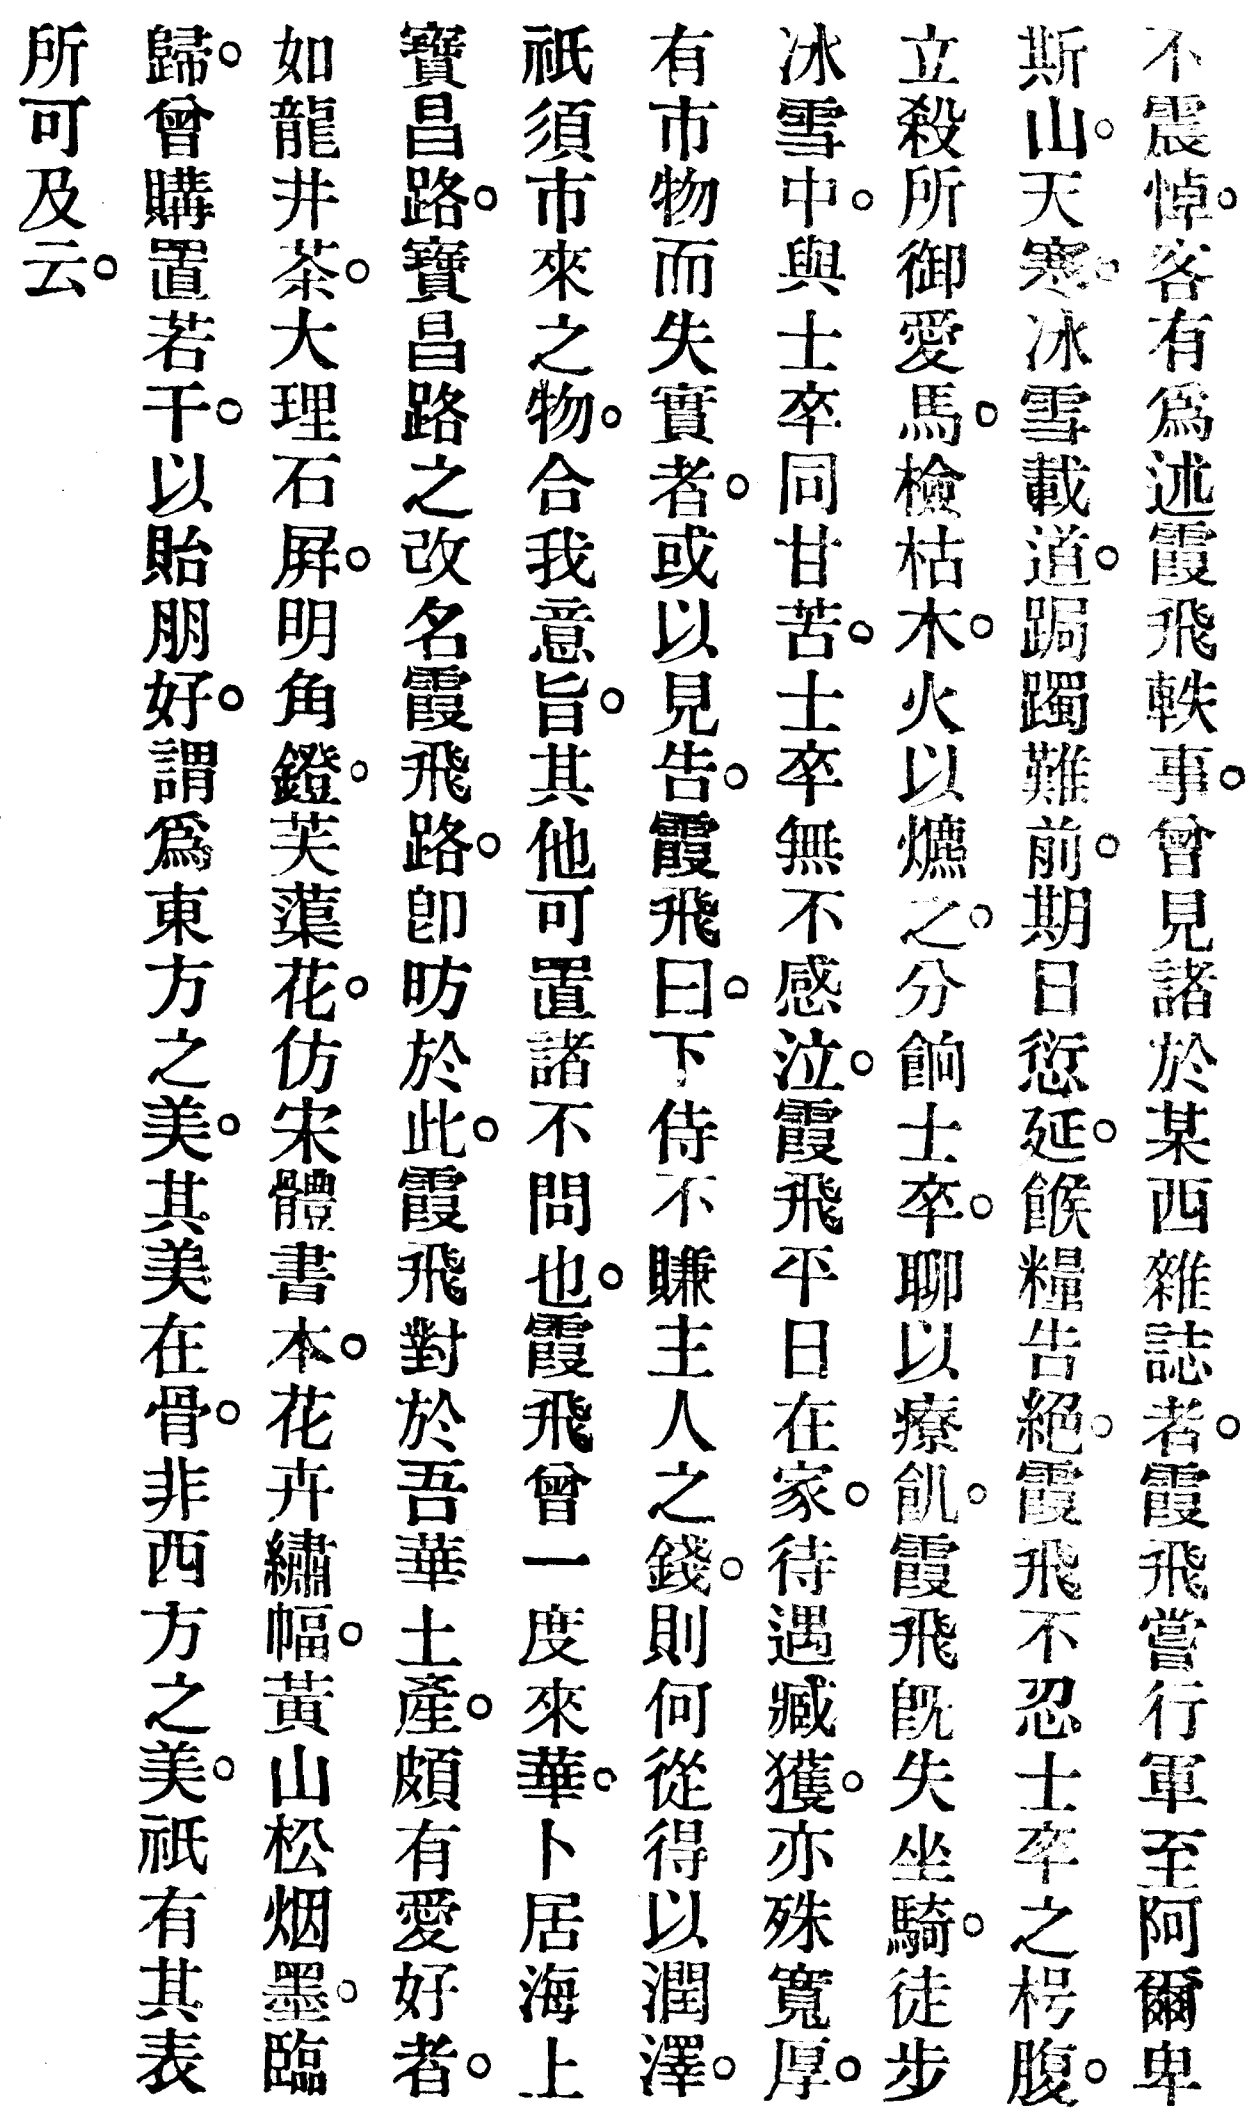 不震悼。客有爲述霞飛軼事。曾見諸於某西雜誌者。霞飛嘗行軍至阿爾卑
斯山。天寒。冰雪載道。跼躅難前。期日愆延。餱糧告絕。霞飛不忍士卒之枵腹。
立殺所御愛馬。檢枯木。火以爊之。分餉士卒。聊以療飢。霞飛旣失坐騎。徒步
冰雪中。與士卒同甘苦。士卒無不感泣。霞飛平日在家。待遇臧獲。亦殊寬厚。
有市物而失實者。或以見吿。霞飛曰。下侍不賺主人之錢。則何從得以潤澤。
祇須市來之物。合我意旨。其他可置諸不問也。霞飛曾一度來華。卜居海上
寶昌路。寶昌路之改名霞飛路。卽昉於此。霞飛對於吾華土產。頗有愛好者。
如龍井茶。大理石屛。明角鐙。芙蕖花。仿宋體書本。花卉繡幅。黃山松烟墨。臨
歸。曾購置若干。以貽朋好。謂爲東方之美。其美在骨。非西方之美。祇有其表
所可及云。